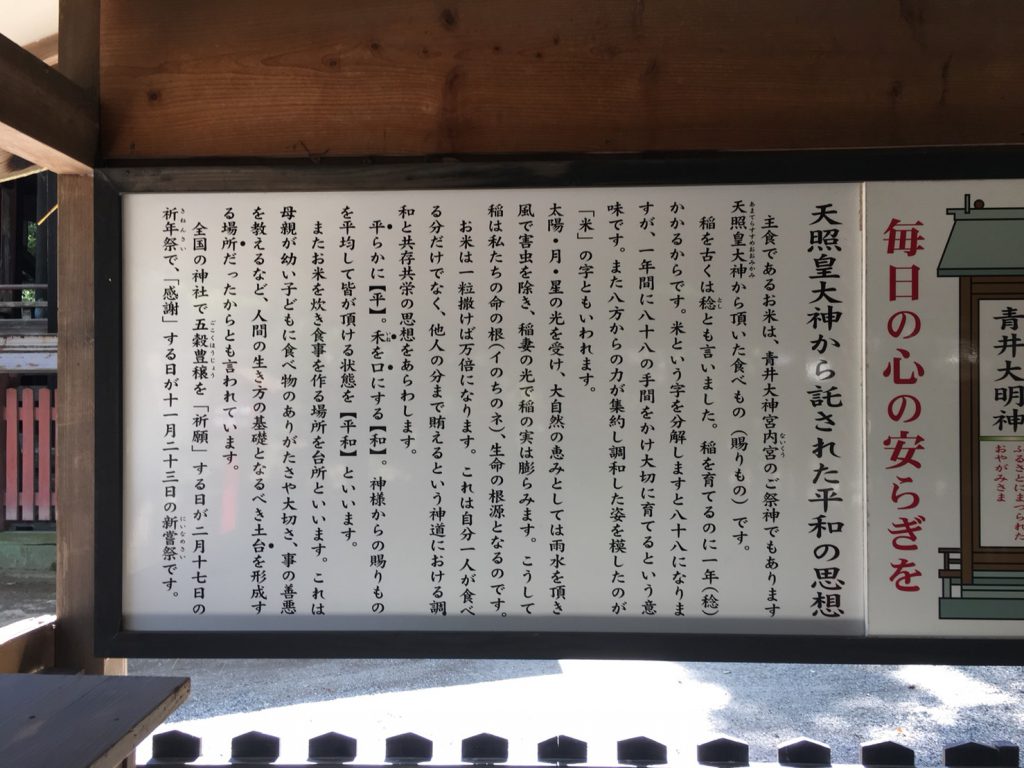 青井大明神
ふるさとにまつられた
おやがみさま
毎日の心の安らぎを
天照皇大神から託された平和の思想
主食であるお米は、青井大神宮内宮のご祭神でもあります
天照皇大神から頂いた食べもの（賜りもの）です。
稲を古くは稔とも言いました。稲を育てるのに一年（稔）
かかるからです。米という字を分解しますと八十八になりま
すが、一年間に八十八の手間をかけ大切に育てるという意
味です。また八方からの力が集約し調和した姿を模したのが
「米」の字ともいわれます。
太陽・月・星の光を受け、大自然の恵みとしては雨水を頂き
風で害虫を除き、稲妻の光で稲の実は膨らみます。こうして
稲は私たちの命の根（イのちのネ）、生命の根源となるのです。
お米は一粒撒けば万倍になります。これは自分一人が食べ
る分だけでなく、他人の分まで賄えるという神道における調
和と共存共栄の思想をあらわします。
平らかに【平】。禾を口にする【和】。神様からの賜りもの
を平均して皆が頂ける状態を【平和】といいます。
またお米を炊き食事を作る場所を台所といいます。これは
母親が幼い子どもに食べ物のありがたさや大切さ、事の善悪
を教えるなど、人間の生き方の基礎となるべき土台を形成す
る場所だったからとも言われています。
全国の神社で五穀豊穣を「祈願」する日が二月十七日の
祈年祭で、「感謝」する日が十一月二十三日の新嘗祭です。